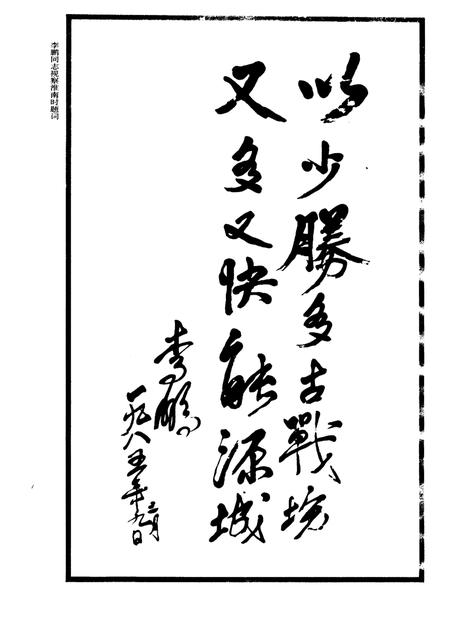 以少勝多古戰場
又多又快能源城
李鹏
一九八五年三月九日
李鹏同志视察淮南时题词